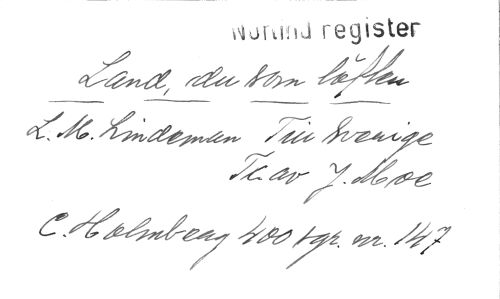 Norlind register
Land, du som löften
L. M. Lindeman Till Sverige
Tr. av J. Moe
C. Holmberg 400 sgr. nr. 147